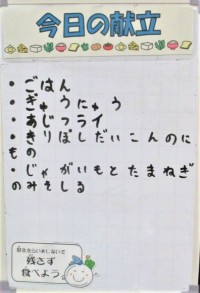 今日の献立
・ごはん
・ぎゅうにゅう
・あじフライ
・きりぼしだいこんのに
もの
・じゃがいもとたまねぎ
のみそしる
残さず
食べよう